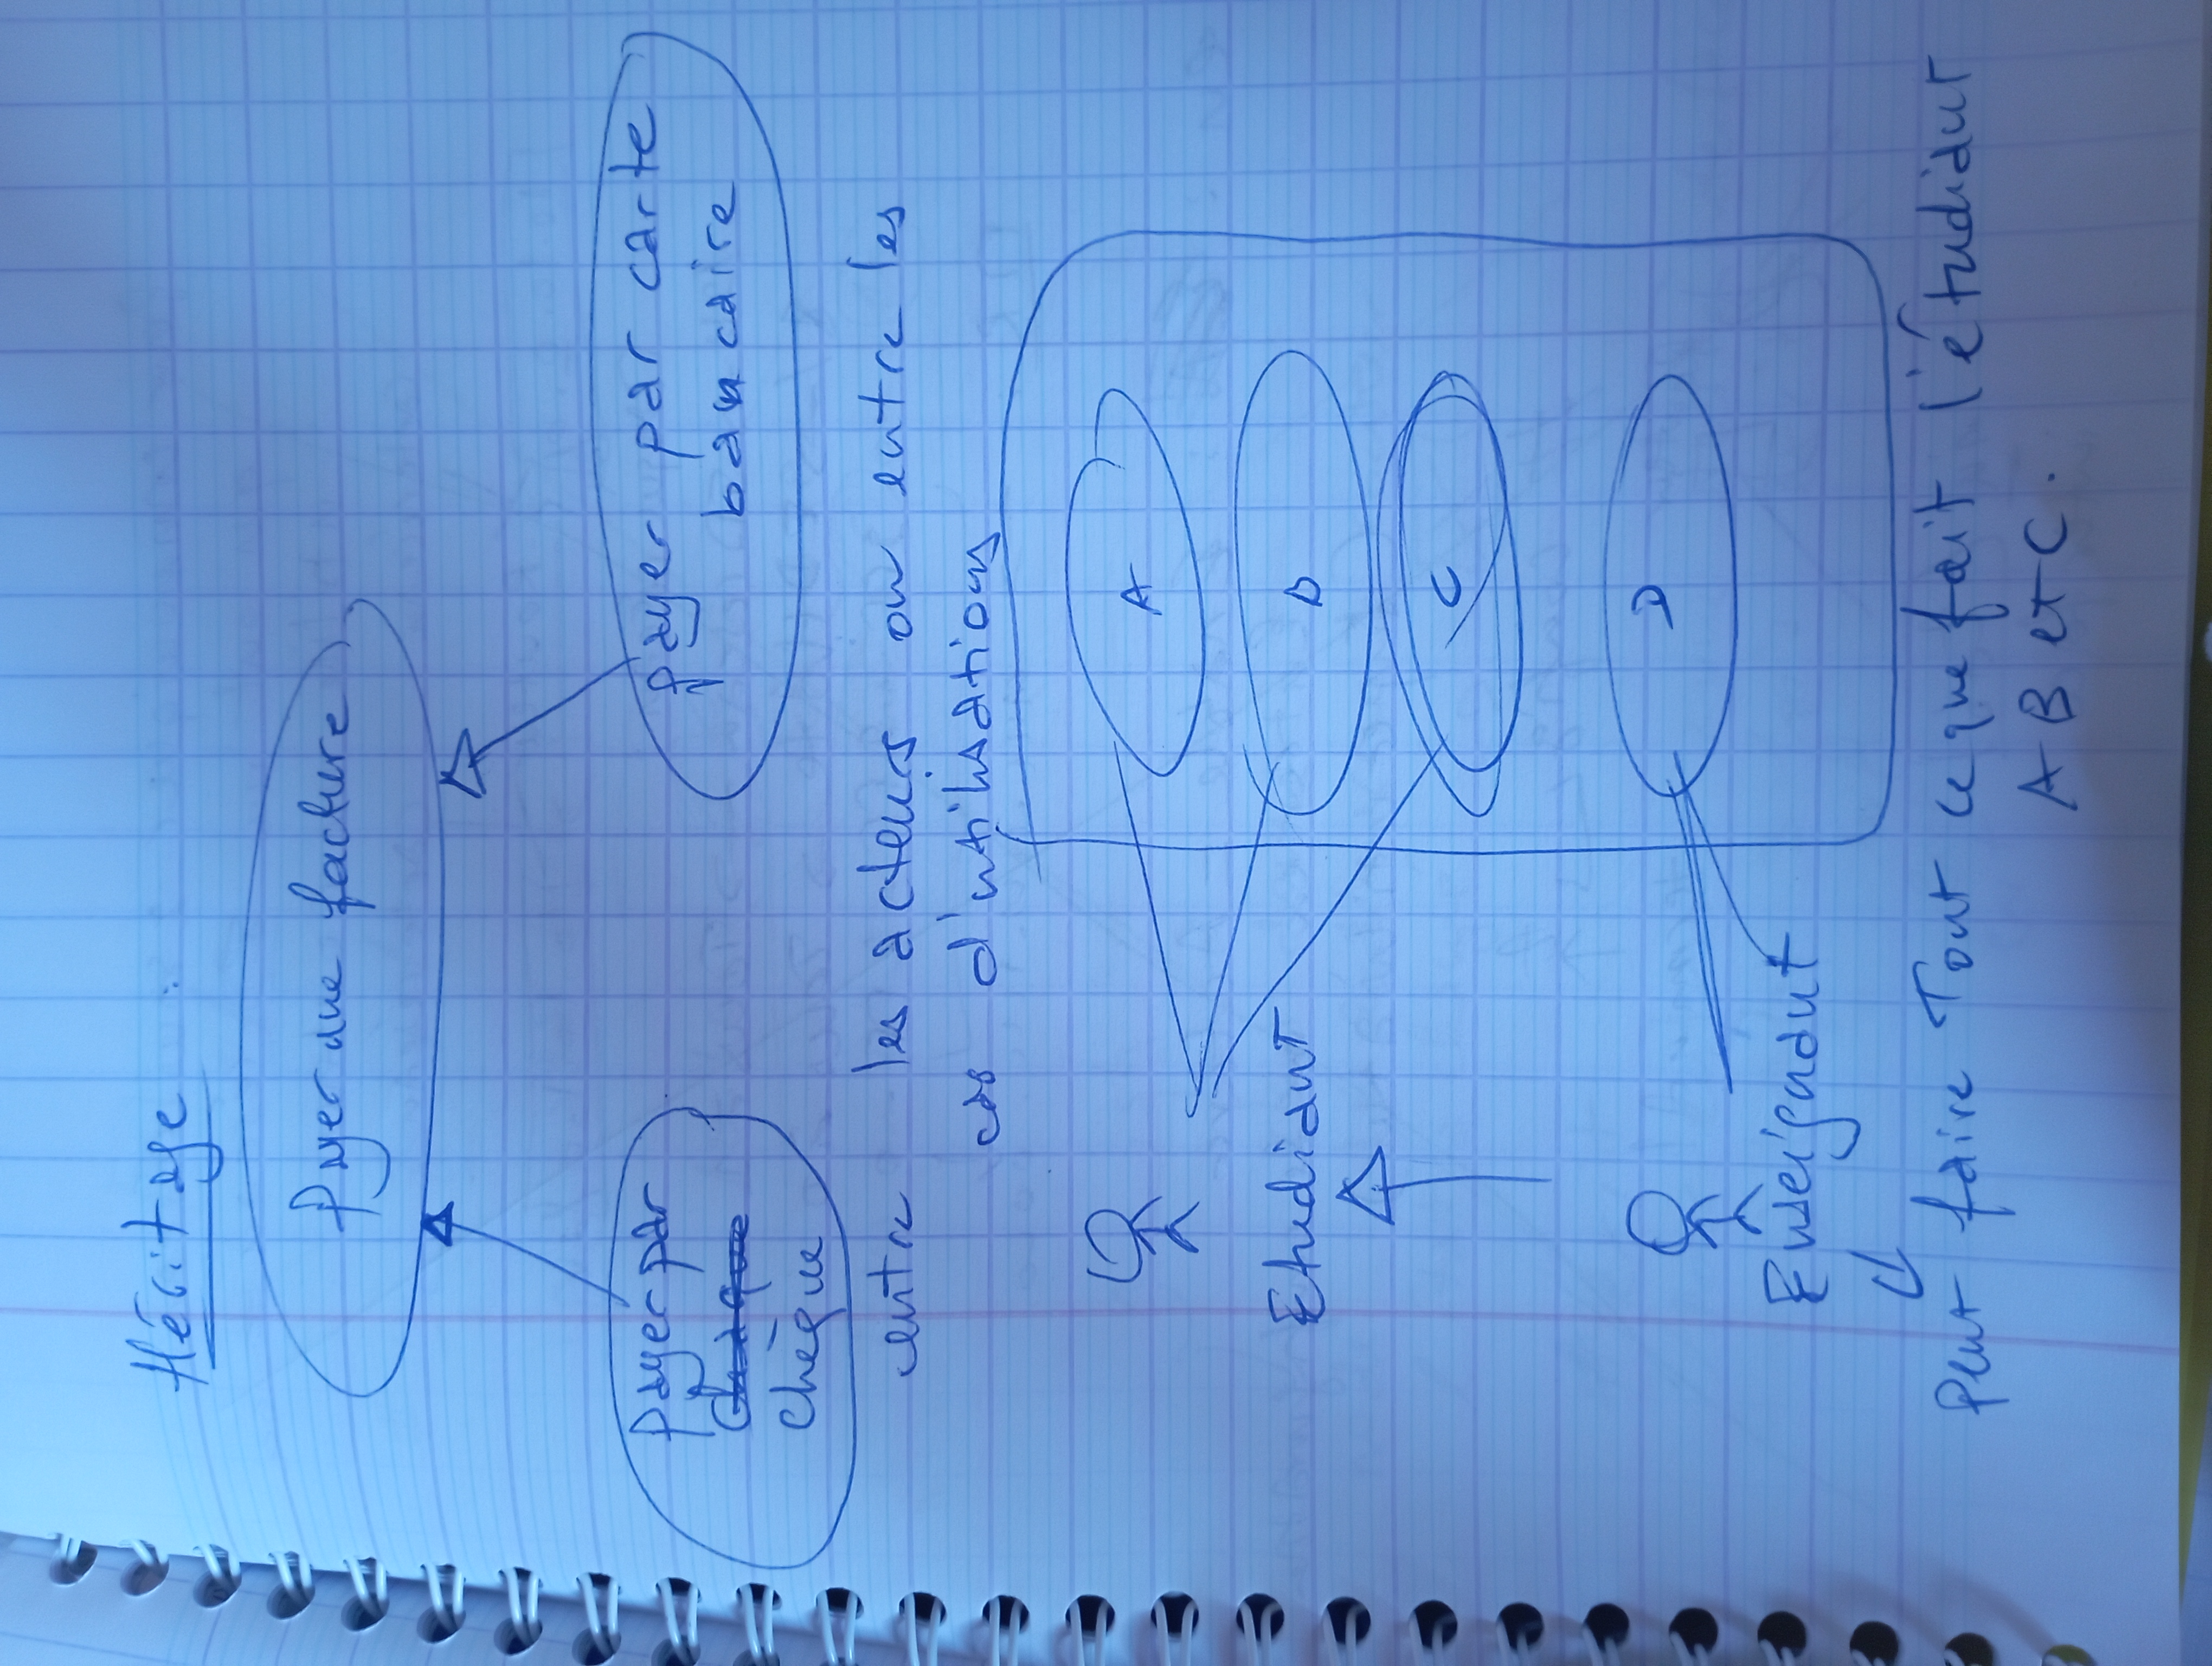 Héritage :
Payer une facture
payer par
chèque
payer par carte
bancaire
entre les acteurs ou entre les
cas d'utilisations
A
Etudiant
B
C
D
Enseignant
Peut faire Tout ce que fait l'étudiant
A B et C.